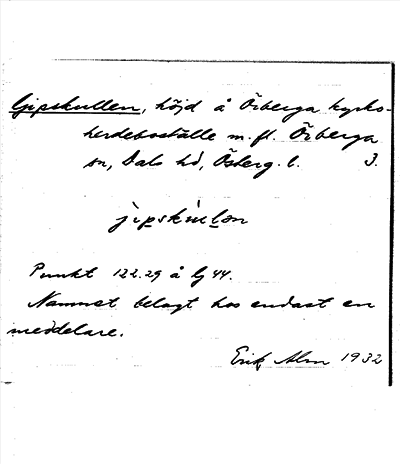 Gipskullen, höjd å Örberga kyrko-
herdeboställe m. fl. Örberga
sn, Dals hd, Österg. l. 3.
jìpskúlən
Punkt 122.29 å bg 44.
Namnet belagt hos endast en
meddelare.
Erik Alm 1932